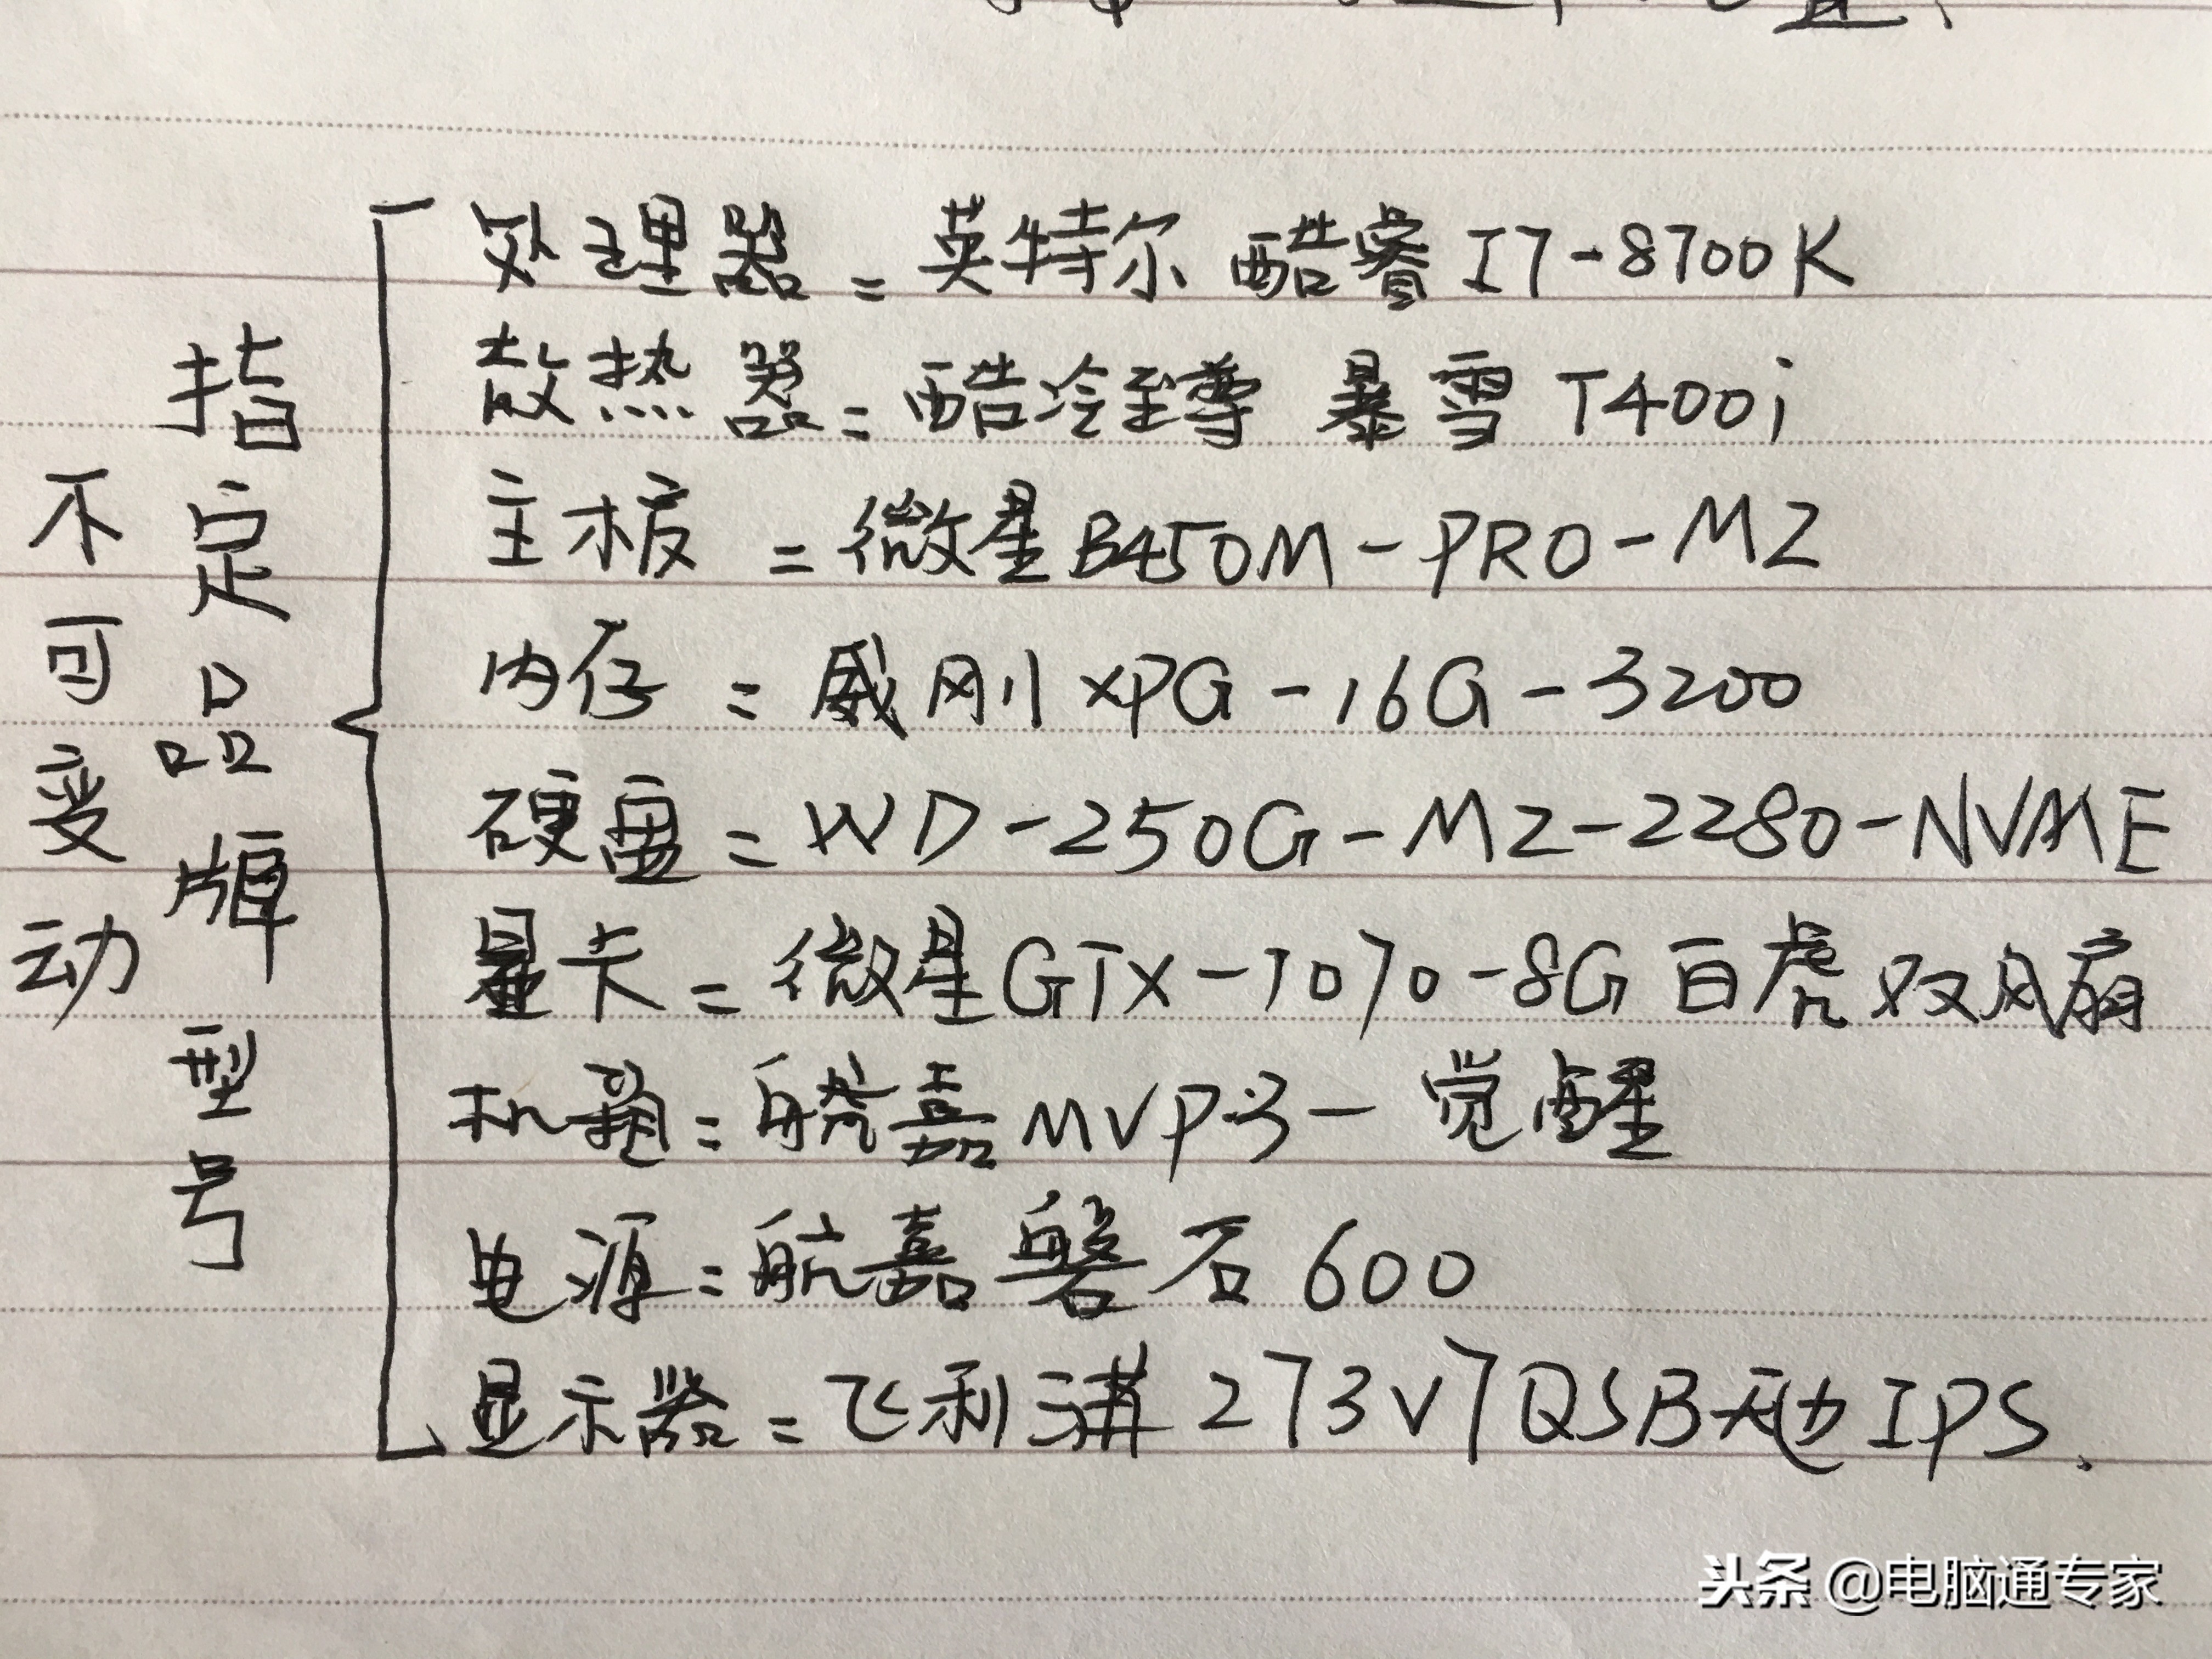 不可变动
指定品牌型号
处理器=英特尔 酷睿 I7-8700K
散热器=酷冷至尊 暴雪 T400i
主板=微星B450M-PRO-M2
内存=威刚XPG-16G-3200
硬盘=WD-250G-M2-2280-NVME
显卡=微星GTX-1070-8G 白虎双风扇
机箱=航嘉MVP3-觉醒
电源=航嘉磐石600
显示器=飞利浦273V7QSB无边IPS.
头条 @电脑通专家